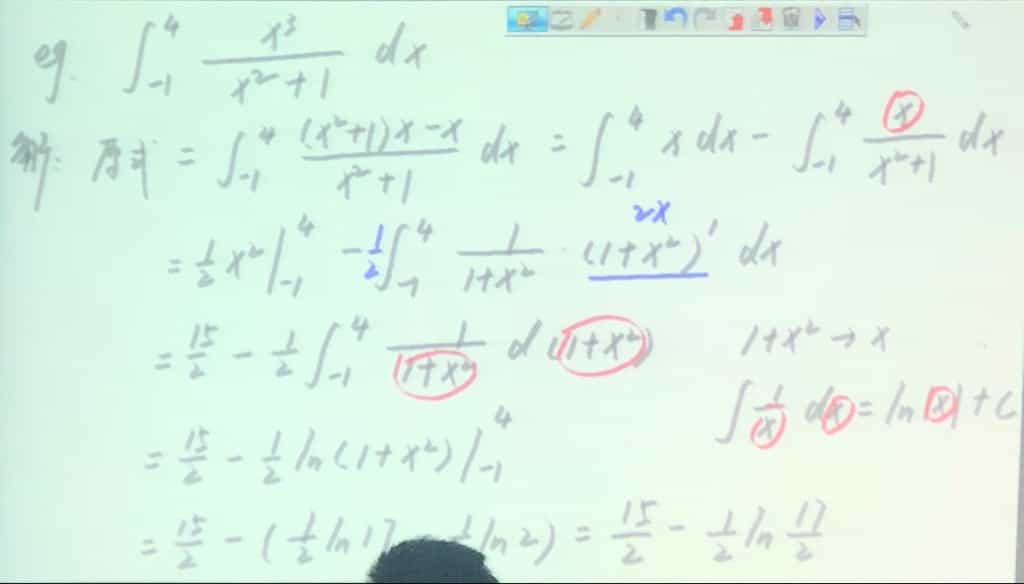 eg. ∫₋₁⁴ x³/(x²+1) dx
解: 原式 = ∫₋₁⁴ ((x²+1)x-x)/(x²+1) dx = ∫₋₁⁴ x dx - ∫₋₁⁴ x/(x²+1) dx
2x
= 1/2 x² |₋₁⁴ - 1/2 ∫₋₁⁴ 1/(1+x²) · (1+x²)' dx
= 15/2 - 1/2 ∫₋₁⁴ 1/(1+x²) d(1+x²)
1+x² → x
∫ 1/x dx = ln|x|+C
= 15/2 - 1/2 ln(1+x²) |₋₁⁴
= 15/2 - (1/2 ln17 - 1/2 ln2) = 15/2 - 1/2 ln 17/2